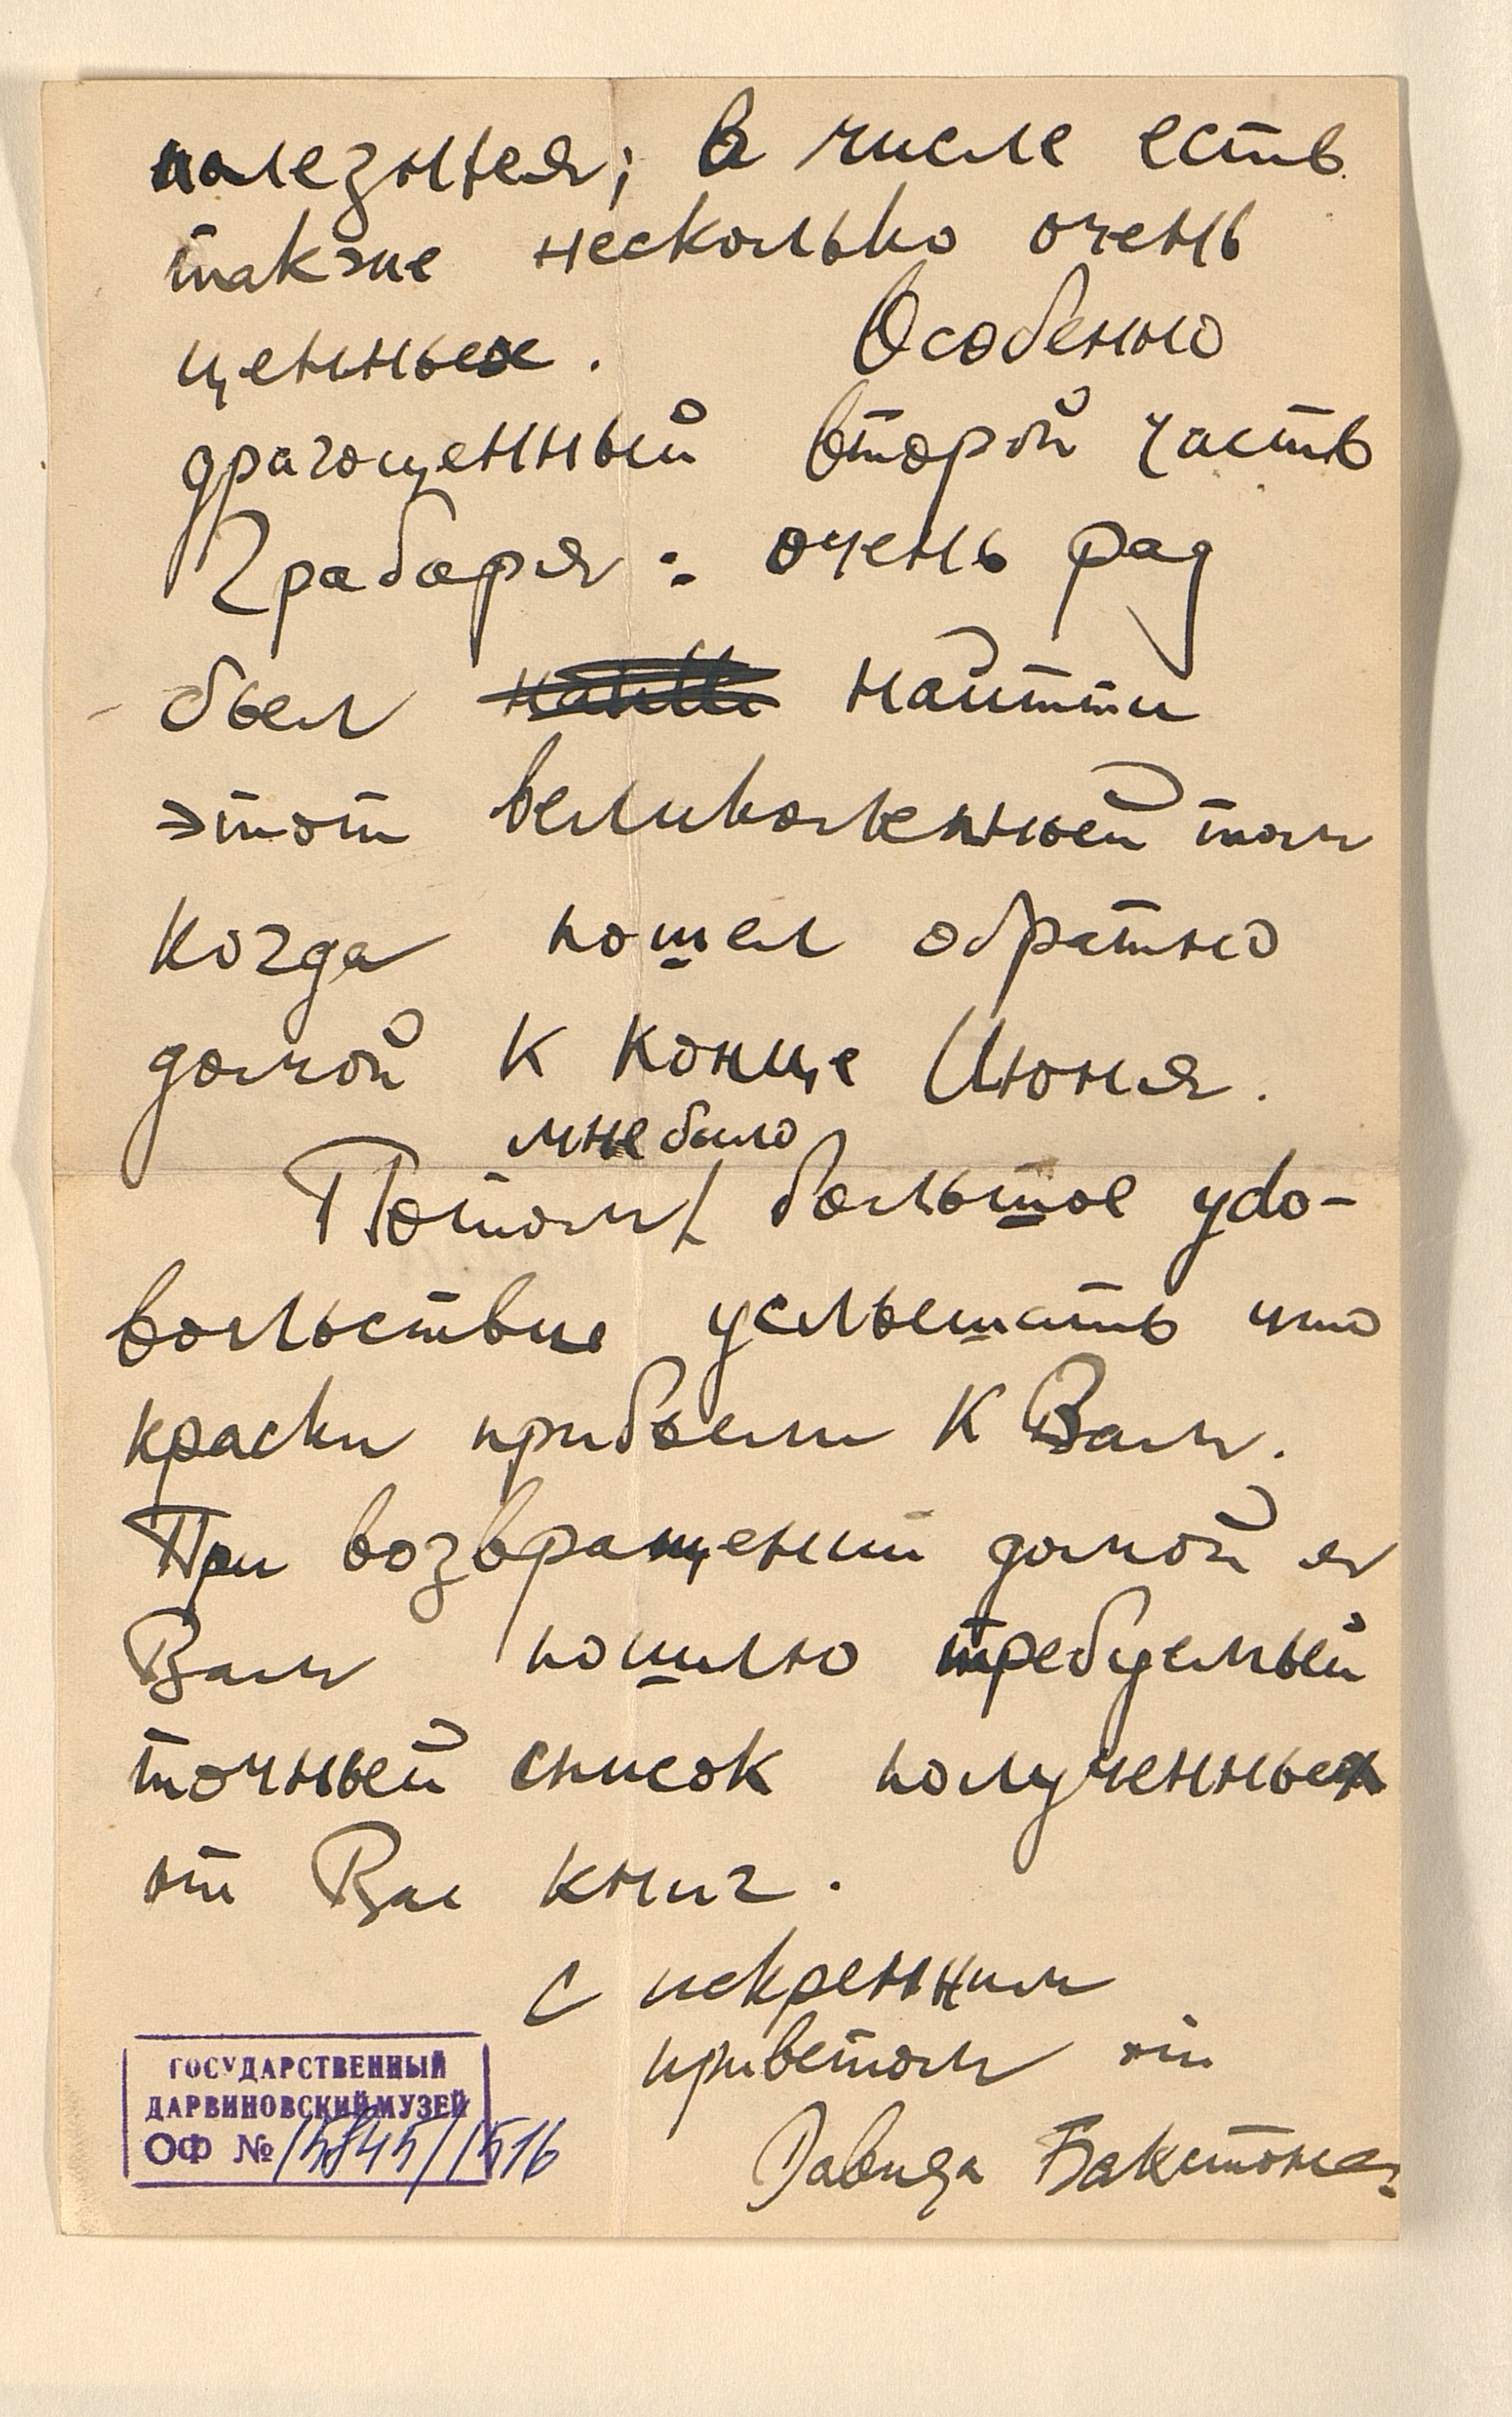 полезныя; в числе есть
также несколько очень
ценных. Особенно
драгоценный второй часть
Грабаря: очень рад
был найтти
этот великоленный том
когда пошел обратно
домой к конце Июня.
мне было
Потом большое удо-
вольствие услышать что
краски прибыли к Вам.
При возвращении домой я
Вам пошлю требуемый
точный список полученных
от Вас книг.
с искренним
приветом от
Давида Бакстона
ГОСУДАРСТВЕННЫЙ
ДАРВИНОВСКИЙ МУЗЕЙ
ОФ № 15845/1516